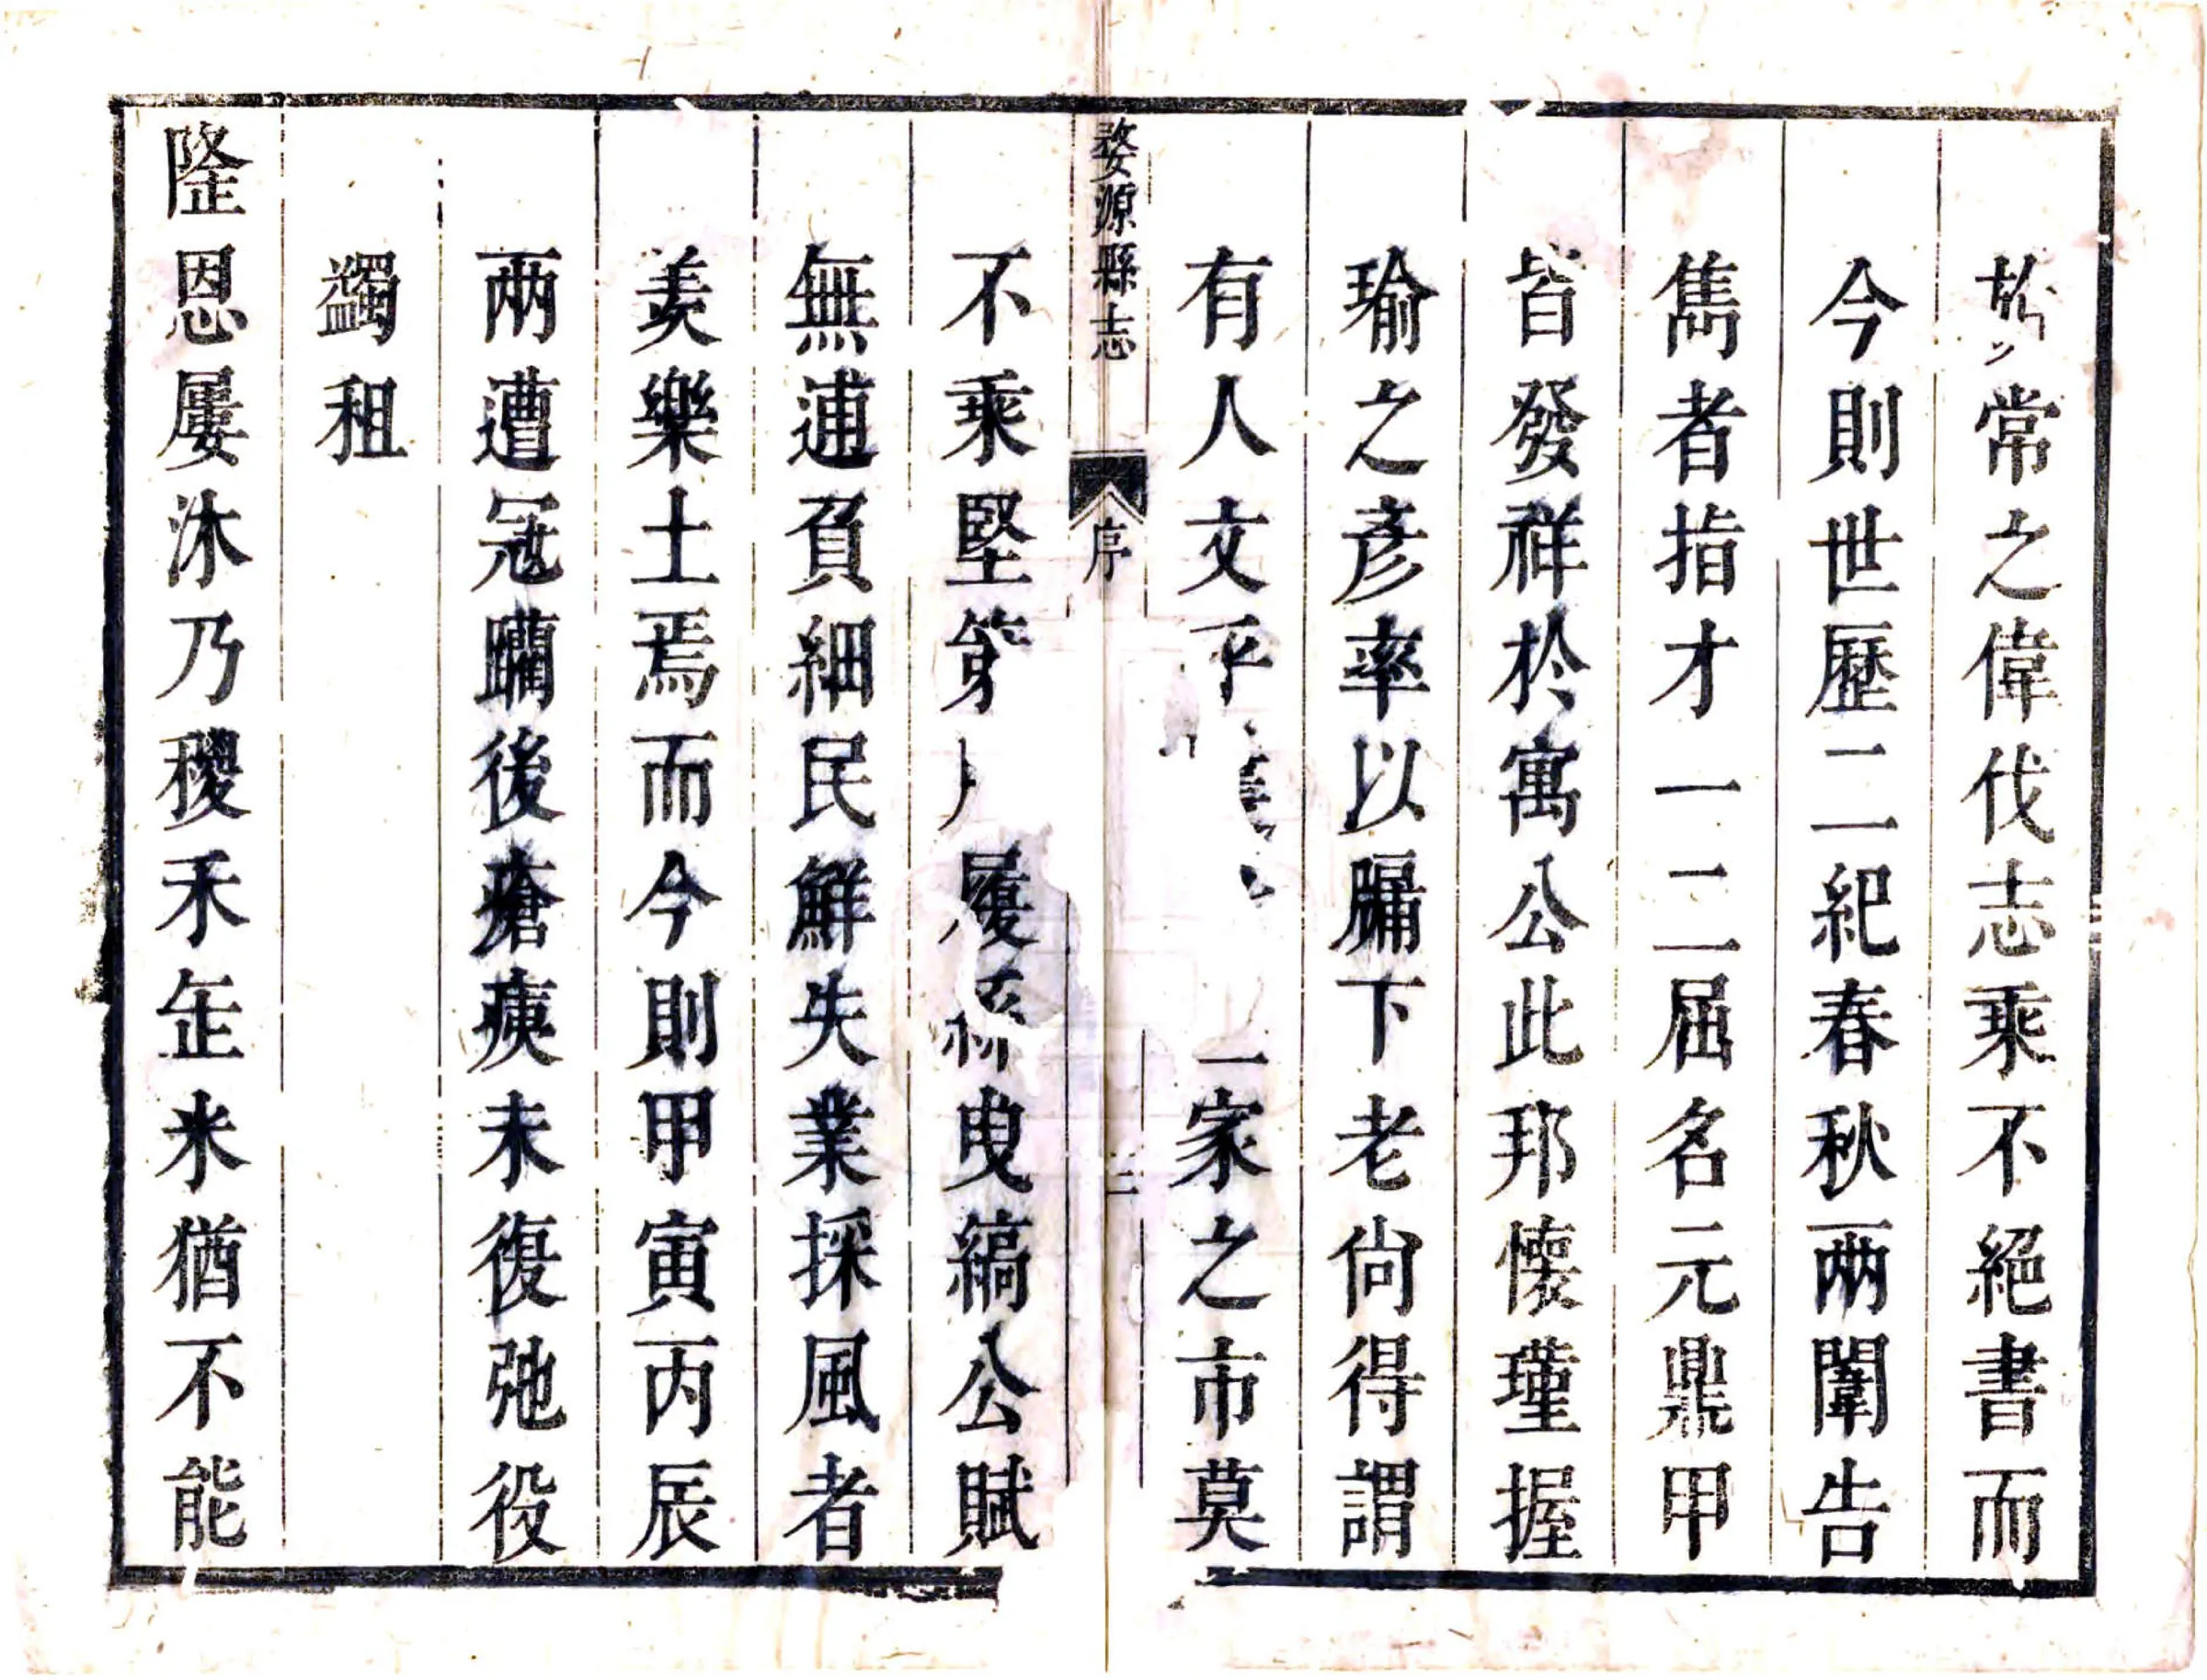 於常之偉伐志乘不絕書而
今則世歷二紀春秋兩闈告
雋者指才一二屈名元鼎甲
皆發祥於寓公此邦懷瑾握
瑜之彥率以牖下老尙得謂
有人文乎一家之市莫
婺源縣志
序
二
不乘堅策履曳縞公賦
無逋負細民鮮失業採風者
羡樂土焉而今則甲寅丙辰
兩遭冦躪後瘡痍未復弛役
蠲租
隆恩屢沐乃稷禾缶米猶不能